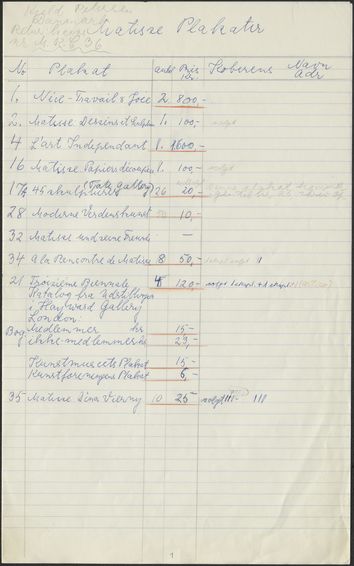 Danmark
Matisse Plakater
No Plakat antal Pris kr. Køberens Navn Adr
1. Nice-Travail & Joie 2 800,-
2. Matisse Dessins et Sculpt 1. 100,- solgt
4 L'art Independant 1. 1600,-
16 Matisse Papiers découpés 1. 100,- solgt
17A 45 skulpturer (Tate Gallery) 26 20,-
28 Moderne Verdenskunst 10,-
32 Matisse und seine Freunde —
34 A la Rencontre de Matisse 8 50,- 1
21 Troisième Biennale 4 120,- solgt
Katalog fra Udstillingen
i Hayward Gallery
London:
Bog medlemmer kr 15-
ikke-medlemmer kr 23,-
Kunstmuseets Plakat 15-
Kunstforeningens Plakat 6,-
35 Matisse Dina Vierny 10 25- solgt III III
1